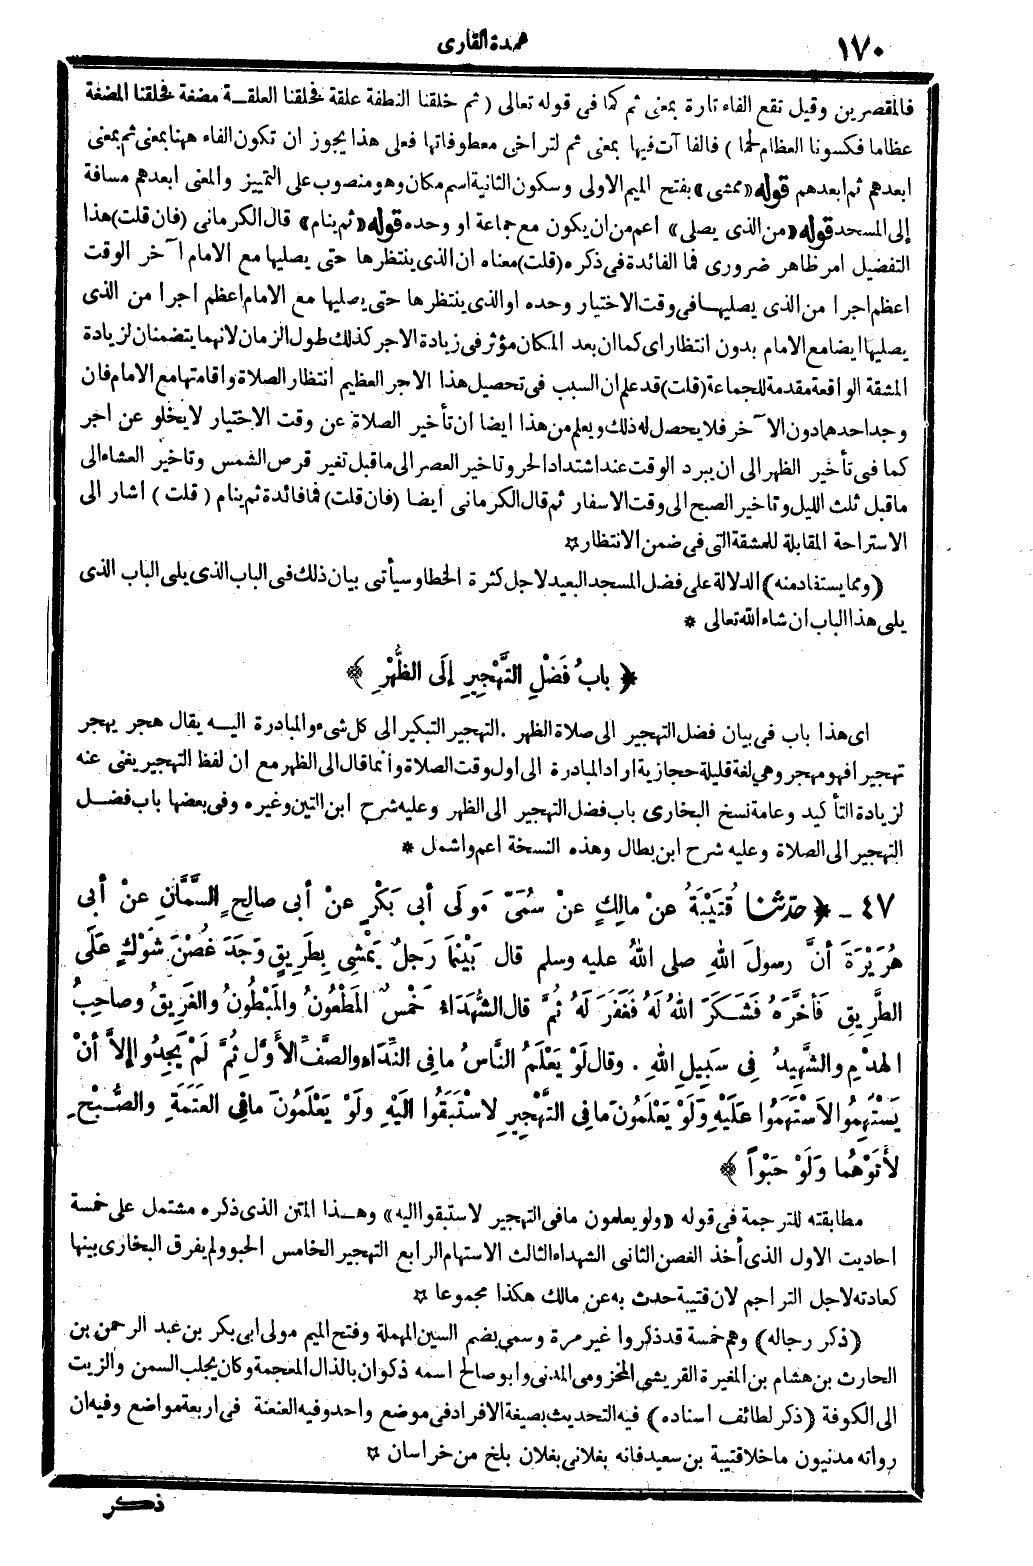 ١٧٠
عمدة القارى
فالمقصرين وقيل تقع الفاء تارة بمعنى ثم كما فى قوله تعالى ( ثم خلقنا النطفة علقة فخلقنا العلقة مضغة فخلقنا المضغة
عظاما فكسونا العظام لحما ) فالفا آت فيها بمعنى ثم لتراخى معطوفاتها فعلى هذا يجوز ان تكون الفاء ههنا بمعنى ثم بمعنى
ابعدهم ثم ابعدهم قوله «ممشى» بفتح الميم الاولى وسكون الثانية اسم مكان وهو منصوب على التمييز والمعنى ابعدهم مسافة
إلى المسجد قوله «من الذى يصلى» اعم من ان يكون مع جماعة او وحده قوله «ثم ينام» قال الكرمانى (فان قلت) هذا
التفضيل امر ظاهر ضرورى فما الفائدة فى ذكره (قلت) معناه ان الذى ينتظرها حتى يصليها مع الامام آخر الوقت
اعظم اجرا من الذى يصليها فى وقت الاختيار وحده او الذى ينتظرها حتى يصليها مع الامام اعظم اجرا من الذى
يصليها ايضا مع الامام بدون انتظار اى كما ان بعد المكان مؤثر فى زيادة الاجر كذلك طول الزمان لانهما يتضمنان لزيادة
المشقة الواقعة مقدمة للجماعة (قلت) قد علم ان السبب فى تحصيل هذا الاجر العظيم انتظار الصلاة واقامتها مع الامام فان
وجد احدهما دون الآخر فلا يحصل له ذلك ويعلم من هذا ايضا ان تأخير الصلاة عن وقت الاختيار لا يخلو عن اجر
كما فى تأخير الظهر الى ان يبرد الوقت عند اشتداد الحر وتاخير العصر الى ما قبل تغير قرص الشمس وتاخير العشاء الى
ما قبل ثلث الليل وتاخير الصبح الى وقت الاسفار ثم قال الكرمانى ايضا (فان قلت) فما فائدة ثم ينام ( قلت ) اشار الى
الاستراحة المقابلة للمشقة التى فى ضمن الانتظار ☆
(ومما يستفاد منه) الدلالة على فضل المسجد البعيد لاجل كثرة الخطا وسيأتى بيان ذلك فى الباب الذى يلى الباب الذى
يلى هذا الباب ان شاء الله تعالى *
﴿ بابُ فَضْلِ التَّهْجِيرِ إِلَى الظُّهْرِ ﴾
اى هذا باب فى بيان فضل التهجير الى صلاة الظهر . التهجير التبكير الى كل شىء والمبادرة اليه يقال هجر يهجر
تهجيرا فهو مهجر وهي لغة قليلة حجازية اراد المبادرة الى اول وقت الصلاة وانما قال الى الظهر مع ان لفظ التهجير يغنى عنه
لزيادة التأكيد وعامة نسخ البخارى باب فضل التهجير الى الظهر وعليه شرح ابن التين وغيره وفى بعضها باب فضل
التهجير الى الصلاة وعليه شرح ابن بطال وهذه النسخة اعم واشمل *
٤٧ - ﴿ حدّثنا قُتَيْبَةُ عنْ مالِكٍ عنْ سُمَىّ مَوْلَى أبى بَكْرٍ عنْ أبى صالِحٍ السَّمَّانِ عنْ أبى
هُرَيْرَةَ أنَّ رسولَ اللهِ صلى اللهُ عليه وسلم قال بَيْنَما رَجُلٌ يَمْشِى بِطَرِيقٍ وَجَدَ غُصْنَ شَوْكٍ عَلَى
الطَّرِيقِ فَأخَّرَهُ فَشَكَرَ اللهُ لَهُ فَغَفَرَ لَهُ ثُمَّ قال الشُّهَدَاءُ خَمْسٌ المَطْعُونُ والمَبْطُونُ والغَرِيقُ وصاحِبُ
الهَدْمِ والشَّهِيدُ فِى سَبِيلِ اللهِ . وقال لَوْ يَعْلَمُ النَّاسُ ما فى النِّدَاءِ والصَّفِّ الأَوَّلِ ثُمَّ لَمْ يَجِدُوا إلاَّ أنْ
يَسْتَهِمُوا لاَسْتَهَمُوا عَلَيْهِ وَلَوْ يَعْلَمُونَ ما فى التَّهْجِيرِ لاسْتَبَقُوا الَيْهِ ولَوْ يَعْلَمُونَ ما فِى العَتَمَةِ والصُّبْحِ
لأَتَوْهُما ولَوْ حَبْواً ﴾
مطابقته للترجمة فى قوله «ولو يعلمون ما فى التهجير لاستبقوا اليه» وهذا المتن الذى ذكره مشتمل على خمسة
احاديث الاول الذى أخذ الغصن الثانى الشهداء الثالث الاستهام الرابع التهجير الخامس الحبو ولم يفرق البخارى بينها
كعادته لاجل التراجم لان قتيبة حدث به عن مالك هكذا مجموعا ☆
(ذكر رجاله) وهم خمسة قد ذكروا غير مرة وسمى بضم السين المهملة وفتح الميم مولى ابى بكر بن عبد الرحمن بن
الحارث بن هشام بن المغيرة القريشى المخزومى المدنى وابو صالح اسمه ذكوان بالذال المعجمة وكان يجلب السمن والزيت
الى الكوفة (ذكر لطائف اسناده) فيه التحديث بصيغة الافراد فى موضع واحد وفيه العنعنة فى اربعة مواضع وفيه ان
رواته مدنيون ما خلا قتيبة بن سعيد فانه بغلانى بغلان بلخ من خراسان ☆
ذكر